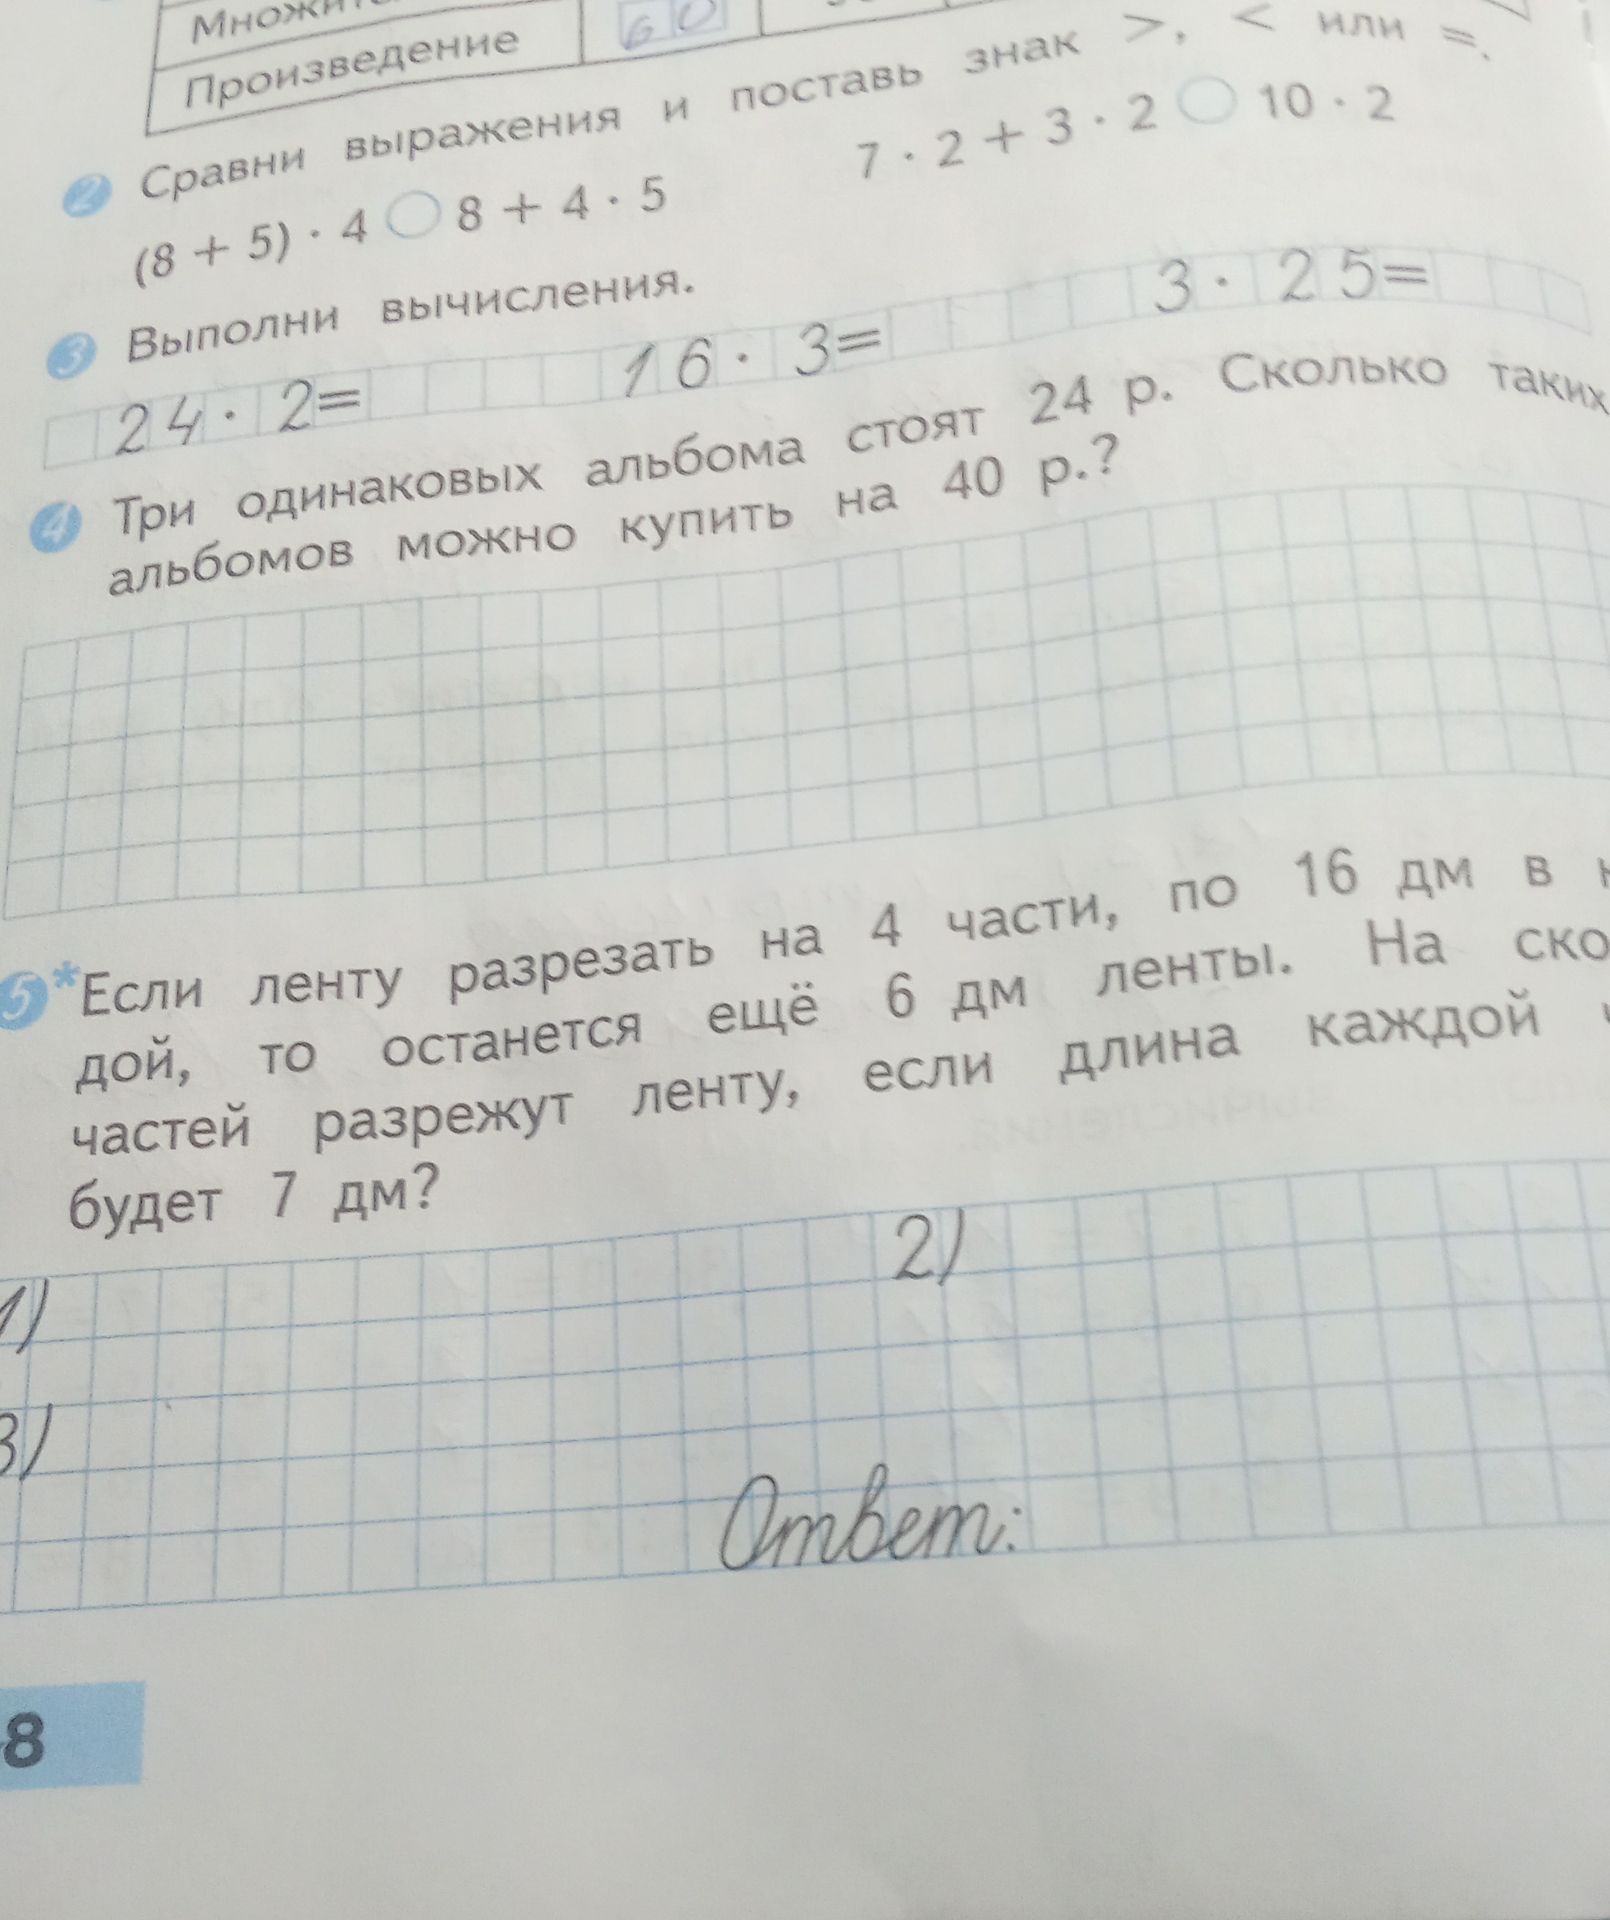 Произведение 60
2 Сравни выражения и поставь знак >, < или =.
(8 + 5) · 4 ○ 8 + 4 · 5 7 · 2 + 3 · 2 ○ 10 · 2
3 Выполни вычисления.
24 · 2= 16 · 3= 3 · 25=
4 Три одинаковых альбома стоят 24 р. Сколько таких
альбомов можно купить на 40 р.?
5 *Если ленту разрезать на 4 части, по 16 дм в
дой, то останется ещё 6 дм ленты. На ско
частей разрежут ленту, если длина каждой
будет 7 дм?
1) 2)
3)
Ответ:
8